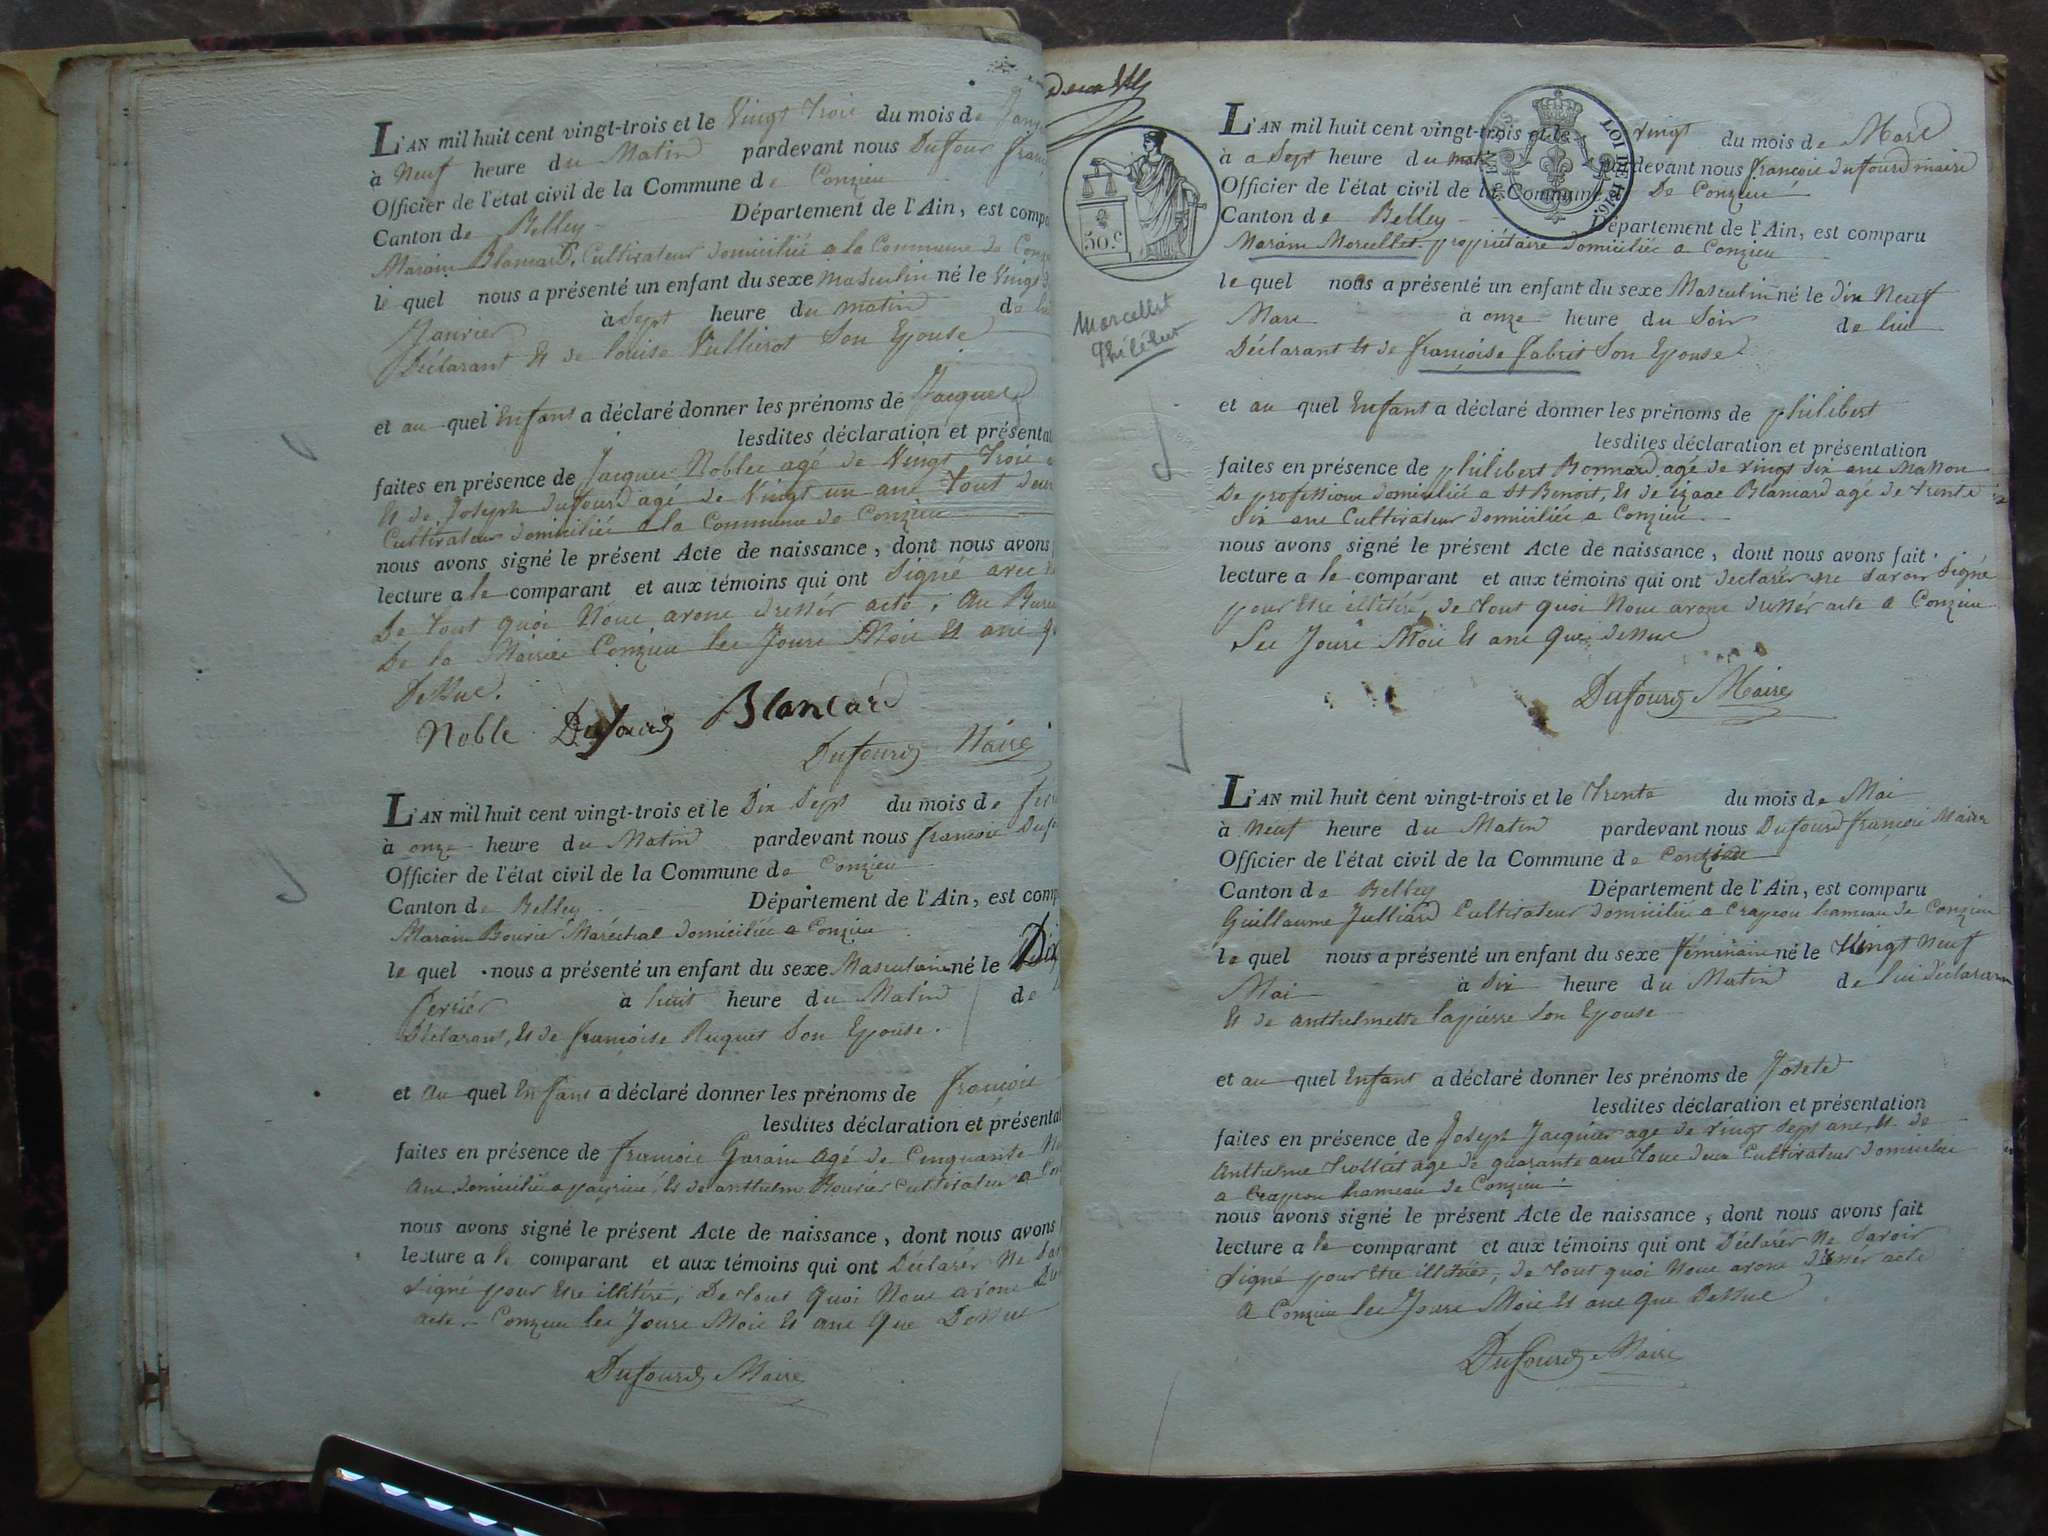 L'AN mil huit cent vingt-trois et le Vingt Troie du mois de
à Neuf heure du Matin pardevant nous Dufour
Officier de l'état civil de la Commune de Conzieu
Canton de Belley Département de l'Ain, est comp
Marain Blancard, Cultivateur domiciliée a la Commune de
le quel nous a présenté un enfant du sexe masculin né le Vingt
Janvier à Sept heure du matin de
Déclarant Et de louise Vullierot Son Epouse
et au quel Enfant a déclaré donner les prénoms de Jacques
lesdites déclaration et présentat
faites en présence de Jacques Noblee agé de Vingt Troie
Et de Joseph Dufourd agé de Vingt un ane Tout deux
Cultivateur domiciliée a la Commune de Conzieu
nous avons signé le présent Acte de naissance, dont nous avons
lecture a le comparant et aux témoins qui ont Signé avec
De Tout quoi Noue avone dressér acte, Au Bure
De la Mairie Conzieu lee Joure Moie Et ane
Dessue.
Noble Dufourd Blancard
Dufourd Maire
L'AN mil huit cent vingt-trois et le Dix Sept du mois de
à onze heure du Matin pardevant nous francoie
Officier de l'état civil de la Commune de Conzieu
Canton de Belley Département de l'Ain, est comp
Marain Bourié Maréchal domiciliée a Conzieu
le quel nous a présenté un enfant du sexe Masculin né le Dix
fevrier à huit heure du Matin de
Déclarant, Et de françoise Ruquet Son Epouse.
et Au quel Enfant a déclaré donner les prénoms de francoie
lesdites déclaration et présentat
faites en présence de francoie Garain Agé de Cinquante
ane domiciliée a Peyrieu, Et de anthelm Bourier Cultivateur a
nous avons signé le présent Acte de naissance, dont nous avons
lecture a le comparant et aux témoins qui ont Déclarér Ne
Signé pour Etre illitéré, De Tout quoi Noue avone
acte. Conzieu lee Joure Moie Et ane Que Dessue
Dufourd Maire
50.c
Marcellet
Philibert
LOI DE 1816.
L'AN mil huit cent vingt-trois et le vingt du mois de Mare
à a Sept heure du mat pardevant nous françoie dufourd maire
Officier de l'état civil de la Commune De Conzieu
Canton de Belley Département de l'Ain, est comparu
Marain Marcellet propriétaire domiciliée a Conzieu
le quel nous a présenté un enfant du sexe Masculin né le dix Neuf
Mare à onze heure du Soir de lui
Déclarant Et de françoise fabret Son Epouse.
et au quel Enfant a déclaré donner les prénoms de philibert
lesdites déclaration et présentation
faites en présence de philibert Bonnard agé de vingt Six ane Masson
De profession domiciliée a St Benoit, Et de izaac Blancard agé de trente
Six ane Cultivateur domiciliée a Conzieu
nous avons signé le présent Acte de naissance, dont nous avons fait
lecture a le comparant et aux témoins qui ont declarér ne savoir signé
pour Etre illitéré, de Tout quoi Noue avone dressér acte a Conzieu
Lee Joure Moie Et ane Que dessue
Dufourd Maire
L'AN mil huit cent vingt-trois et le Trente du mois de Mai
à Neuf heure du Matin pardevant nous Dufourd françoie Maire
Officier de l'état civil de la Commune de Conzieu
Canton de Belley Département de l'Ain, est comparu
Guillaume Julliard Cultivateur domiciliée a Crapeou hameau de Conzieu
le quel nous a présenté un enfant du sexe féminain né le Vingt Neuf
Mai à Dix heure du Matin de lui déclarant
Et de anthelmette lapierre Son Epouse
et au quel Enfant a déclaré donner les prénoms de Josete
lesdites déclaration et présentation
faites en présence de Joseph Jacquier age de vingt Sept ane, Et de
Anthelme Trolliet age de quarante ane Toue deux Cultivateur domiciliee
a Crapeou hameau de Conzieu
nous avons signé le présent Acte de naissance, dont nous avons fait
lecture a le comparant et aux témoins qui ont Déclarér Ne Savoir
Signé pour Etre illitéré, de Tout quoi Noue avone dressér acte
A Conzieu lee Joure Moie Et ane Que Dessue
Dufourd Maire